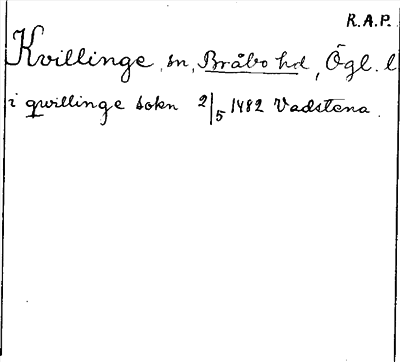 R.A.P.
Kvillinge, sn, Bråbo hd, Ögl. l
i qwillinge sokn 2/5 1482 Vadstena.